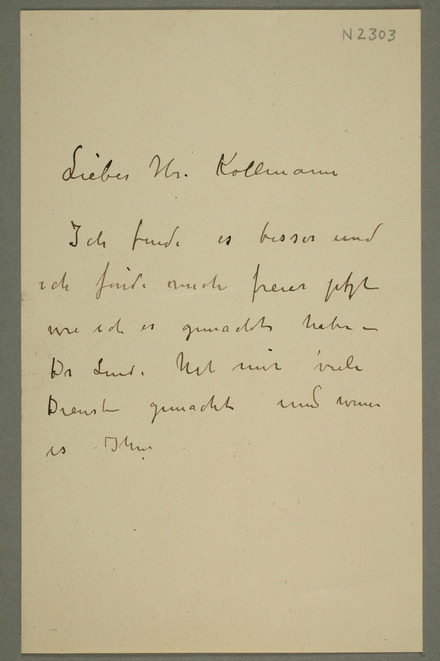 N 2303
Lieber Hr. Kollmann
Ich finde es besser und
ich finde mich freier jetzt
wie ich es gemacht habe –
Dr Linde hat mir viele
Dienste gemacht und wenn
es Ihn